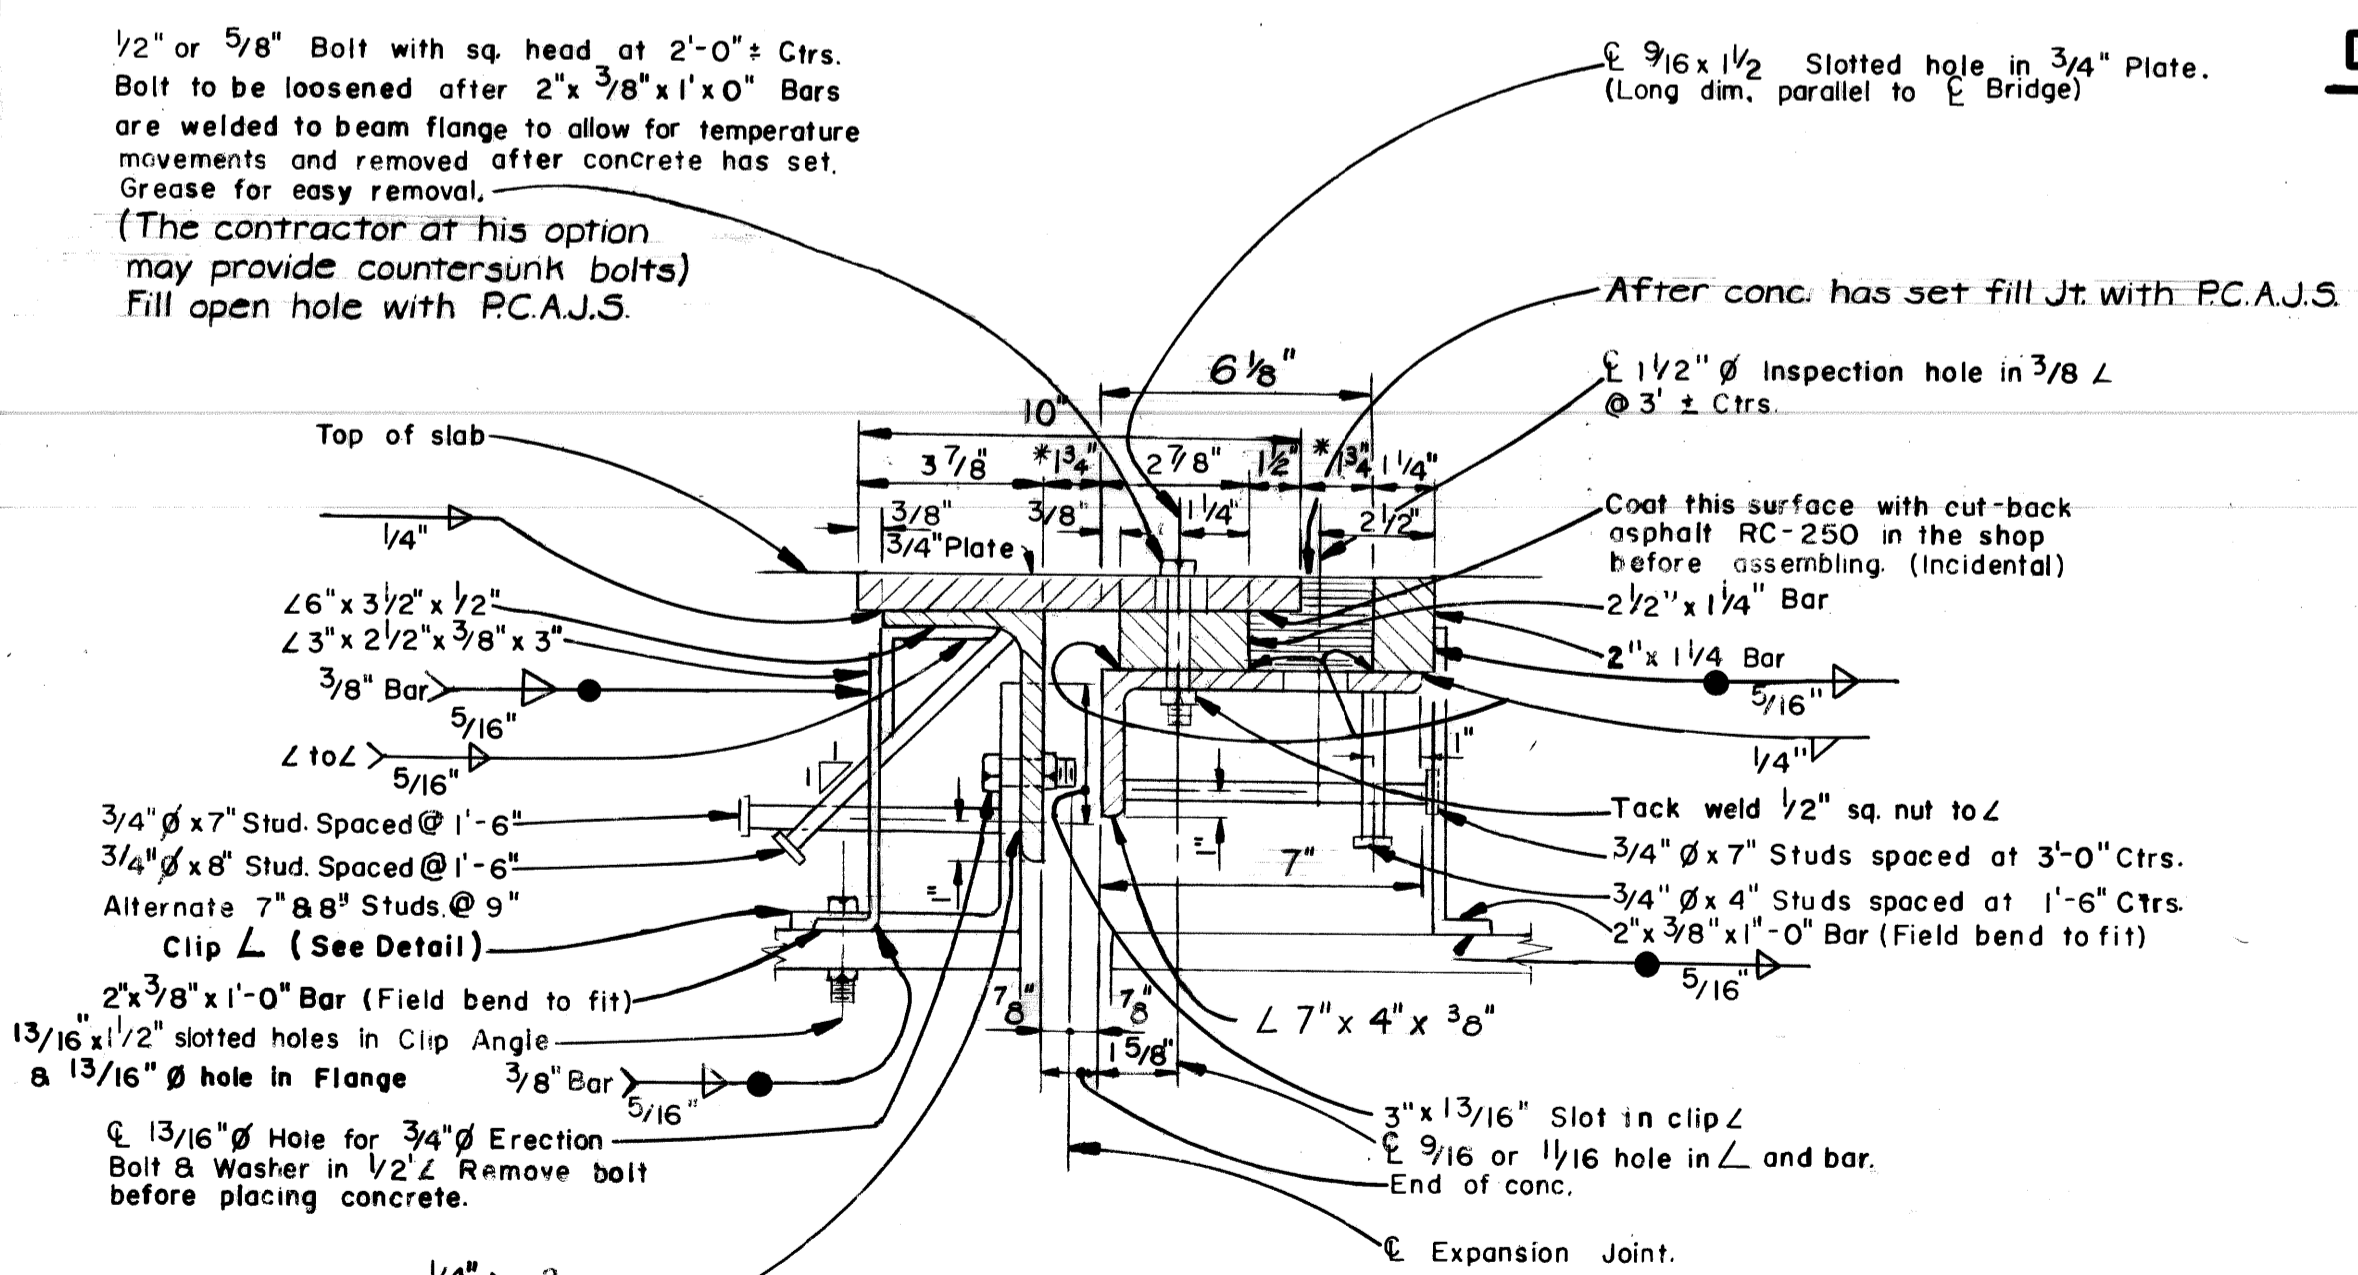 1/2" or 5/8" Bolt with sq. head at 2'-0"± Ctrs.
Bolt to be loosened after 2"x 3/8"x 1'x 0" Bars
are welded to beam flange to allow for temperature
movements and removed after concrete has set.
Grease for easy removal.
(The contractor at his option
may provide countersunk bolts)
Fill open hole with P.C.A.J.S.
℄ 9/16 x 1 1/2 Slotted hole in 3/4" Plate.
(Long dim. parallel to ℄ Bridge)
After conc. has set fill Jt. with P.C.A.J.S.
℄ 1 1/2" Ø Inspection hole in 3/8 ∠
@ 3' ± Ctrs.
6 1/8"
10"
3 7/8"
*1 3/4"
2 7/8"
1 1/2"
*1 3/4"
1 1/4"
3/8"
3/8"
1 1/4"
2 1/2"
3/4" Plate
Top of slab
1/4"
∠6" x 3 1/2" x 1/2"
∠3" x 2 1/2" x 3/8" x 3"
3/8" Bar
5/16"
∠ to∠
5/16"
1
1
3/4" Ø x7" Stud. Spaced @ 1'-6"
3/4" Ø x 8" Stud. Spaced @ 1'-6"
Alternate 7" & 8" Studs. @ 9"
Clip ∠ (See Detail)
2"x 3/8" x 1'-0" Bar (Field bend to fit)
13/16"x1 1/2" slotted holes in Clip Angle
& 13/16" Ø hole in Flange
3/8" Bar
5/16"
℄ 13/16"Ø Hole for 3/4"Ø Erection
Bolt & Washer in 1/2'∠ Remove bolt
before placing concrete.
Coat this surface with cut-back
asphalt RC-250 in the shop
before assembling. (Incidental)
2 1/2" x 1 1/4" Bar
2" x 1 1/4 Bar
5/16"
1/4"
1"
1"
1"
7"
Tack weld 1/2" sq. nut to ∠
3/4" Ø x 7" Studs spaced at 3'-0" Ctrs.
3/4" Ø x 4" Studs spaced at 1'-6" Ctrs.
2"x 3/8"x1"-0" Bar (Field bend to fit)
5/16"
7/8"
7/8"
1 5/8"
∠ 7" x 4" x 3/8"
3" x 13/16" Slot in clip ∠
℄ 9/16 or 11/16 hole in ∠ and bar.
End of conc.
℄ Expansion Joint.